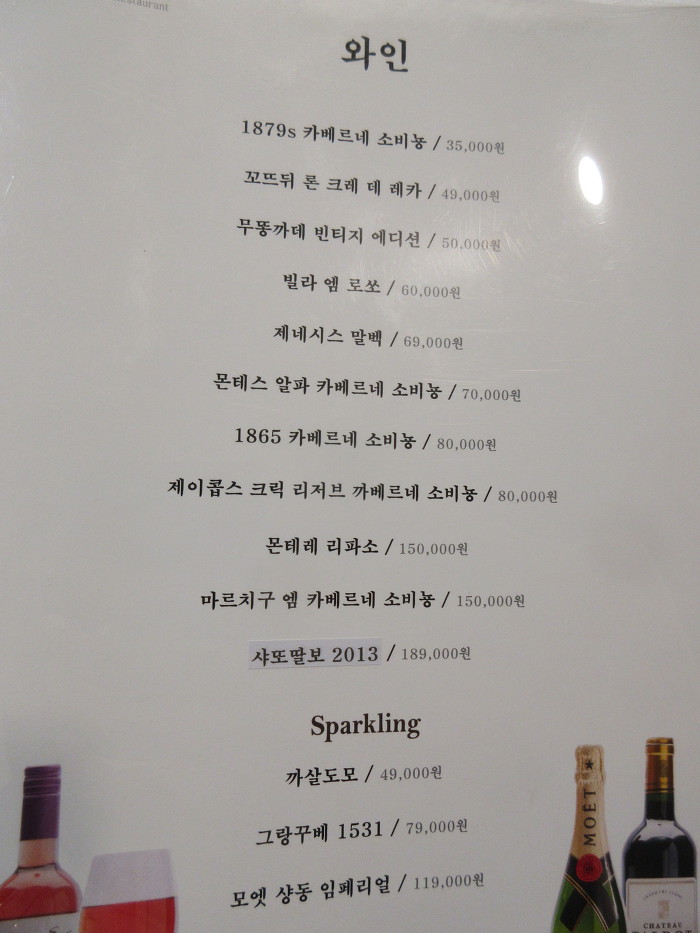 와인
1879s 카베르네 소비뇽 / 35,000원
꼬뜨뒤 론 크레 데 레카 / 49,000원
무똥까데 빈티지 에디션 / 50,000원
빌라 엠 로쏘 / 60,000원
제네시스 말벡 / 69,000원
몬테스 알파 카베르네 소비뇽 / 70,000원
1865 카베르네 소비뇽 / 80,000원
제이콥스 크릭 리저브 까베르네 소비뇽 / 80,000원
몬테레 리파소 / 150,000원
마르치구 엠 카베르네 소비뇽 / 150,000원
샤또딸보 2013 / 189,000원
Sparkling
까살도모 / 49,000원
그랑꾸베 1531 / 79,000원
모엣 샹동 임페리얼 / 119,000원
MOËT
CHATEAU